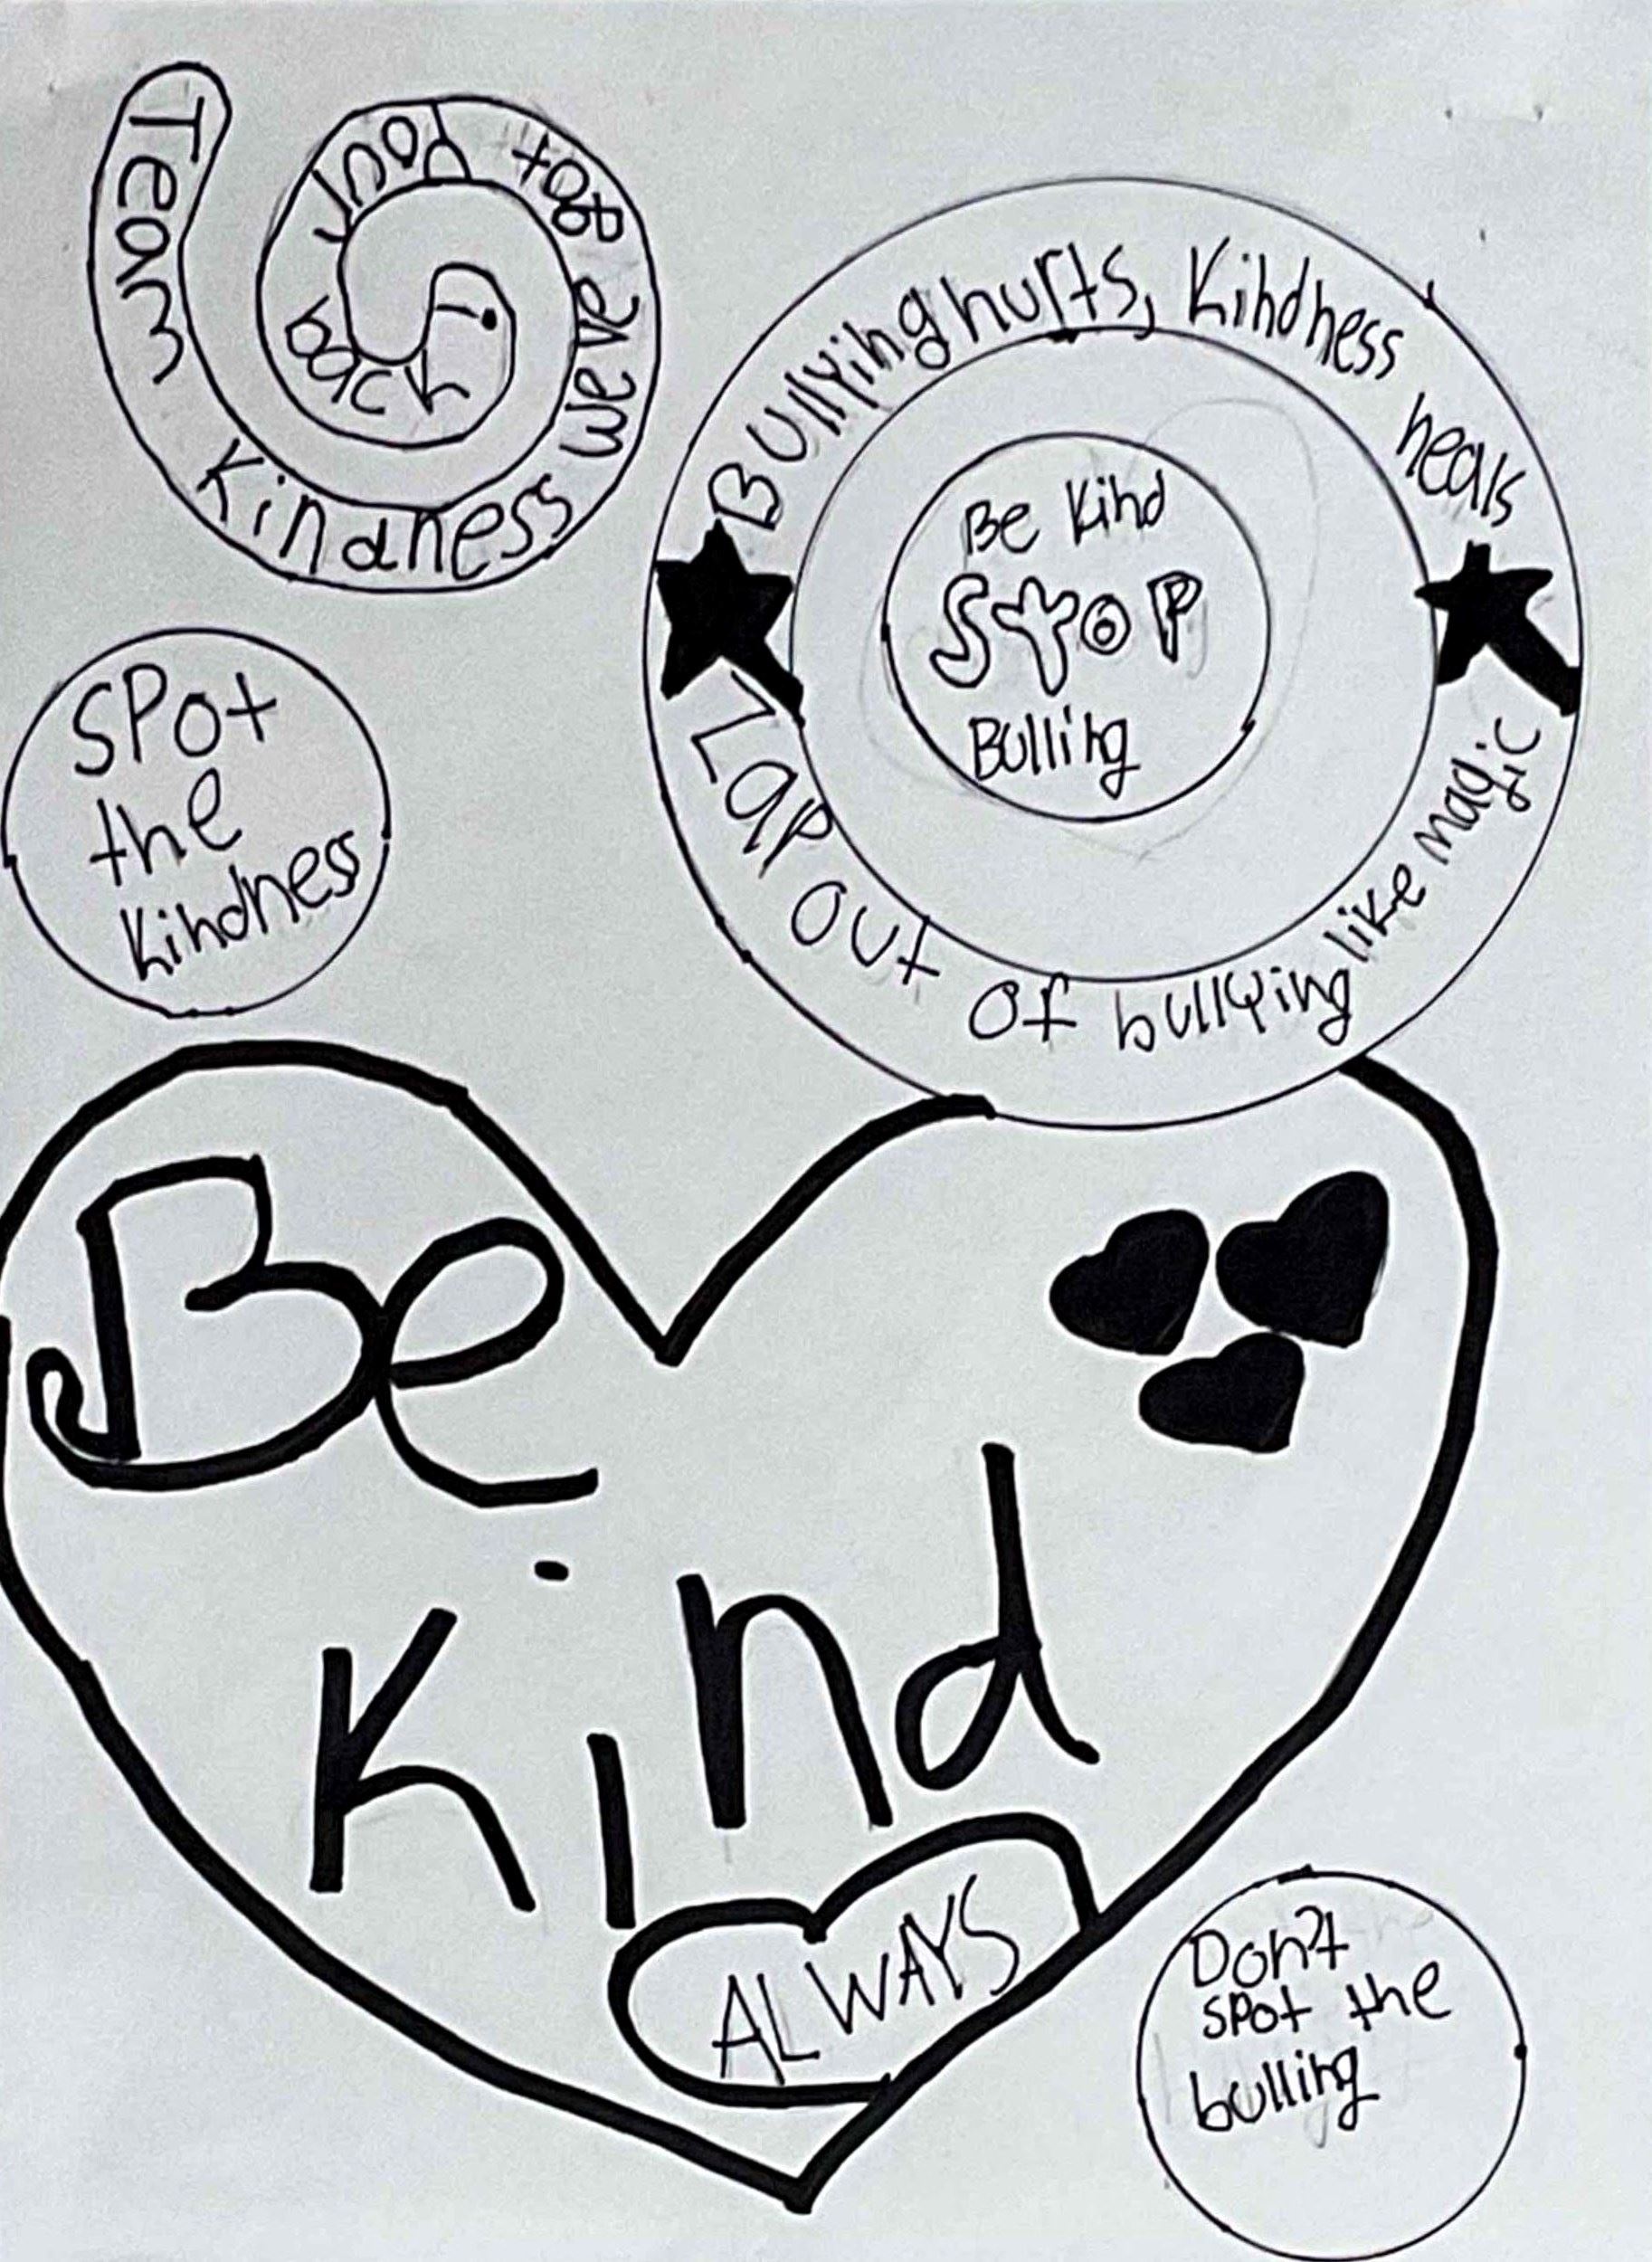 Team Kindness we've got your back!
Bullying hurts, Kindness heals
Be Kind
STOP
Bulling
Zap out of bullying like magic
SPot
the
Kindness
Be
Kind
ALWAYS
Don't
SPot the
bulling